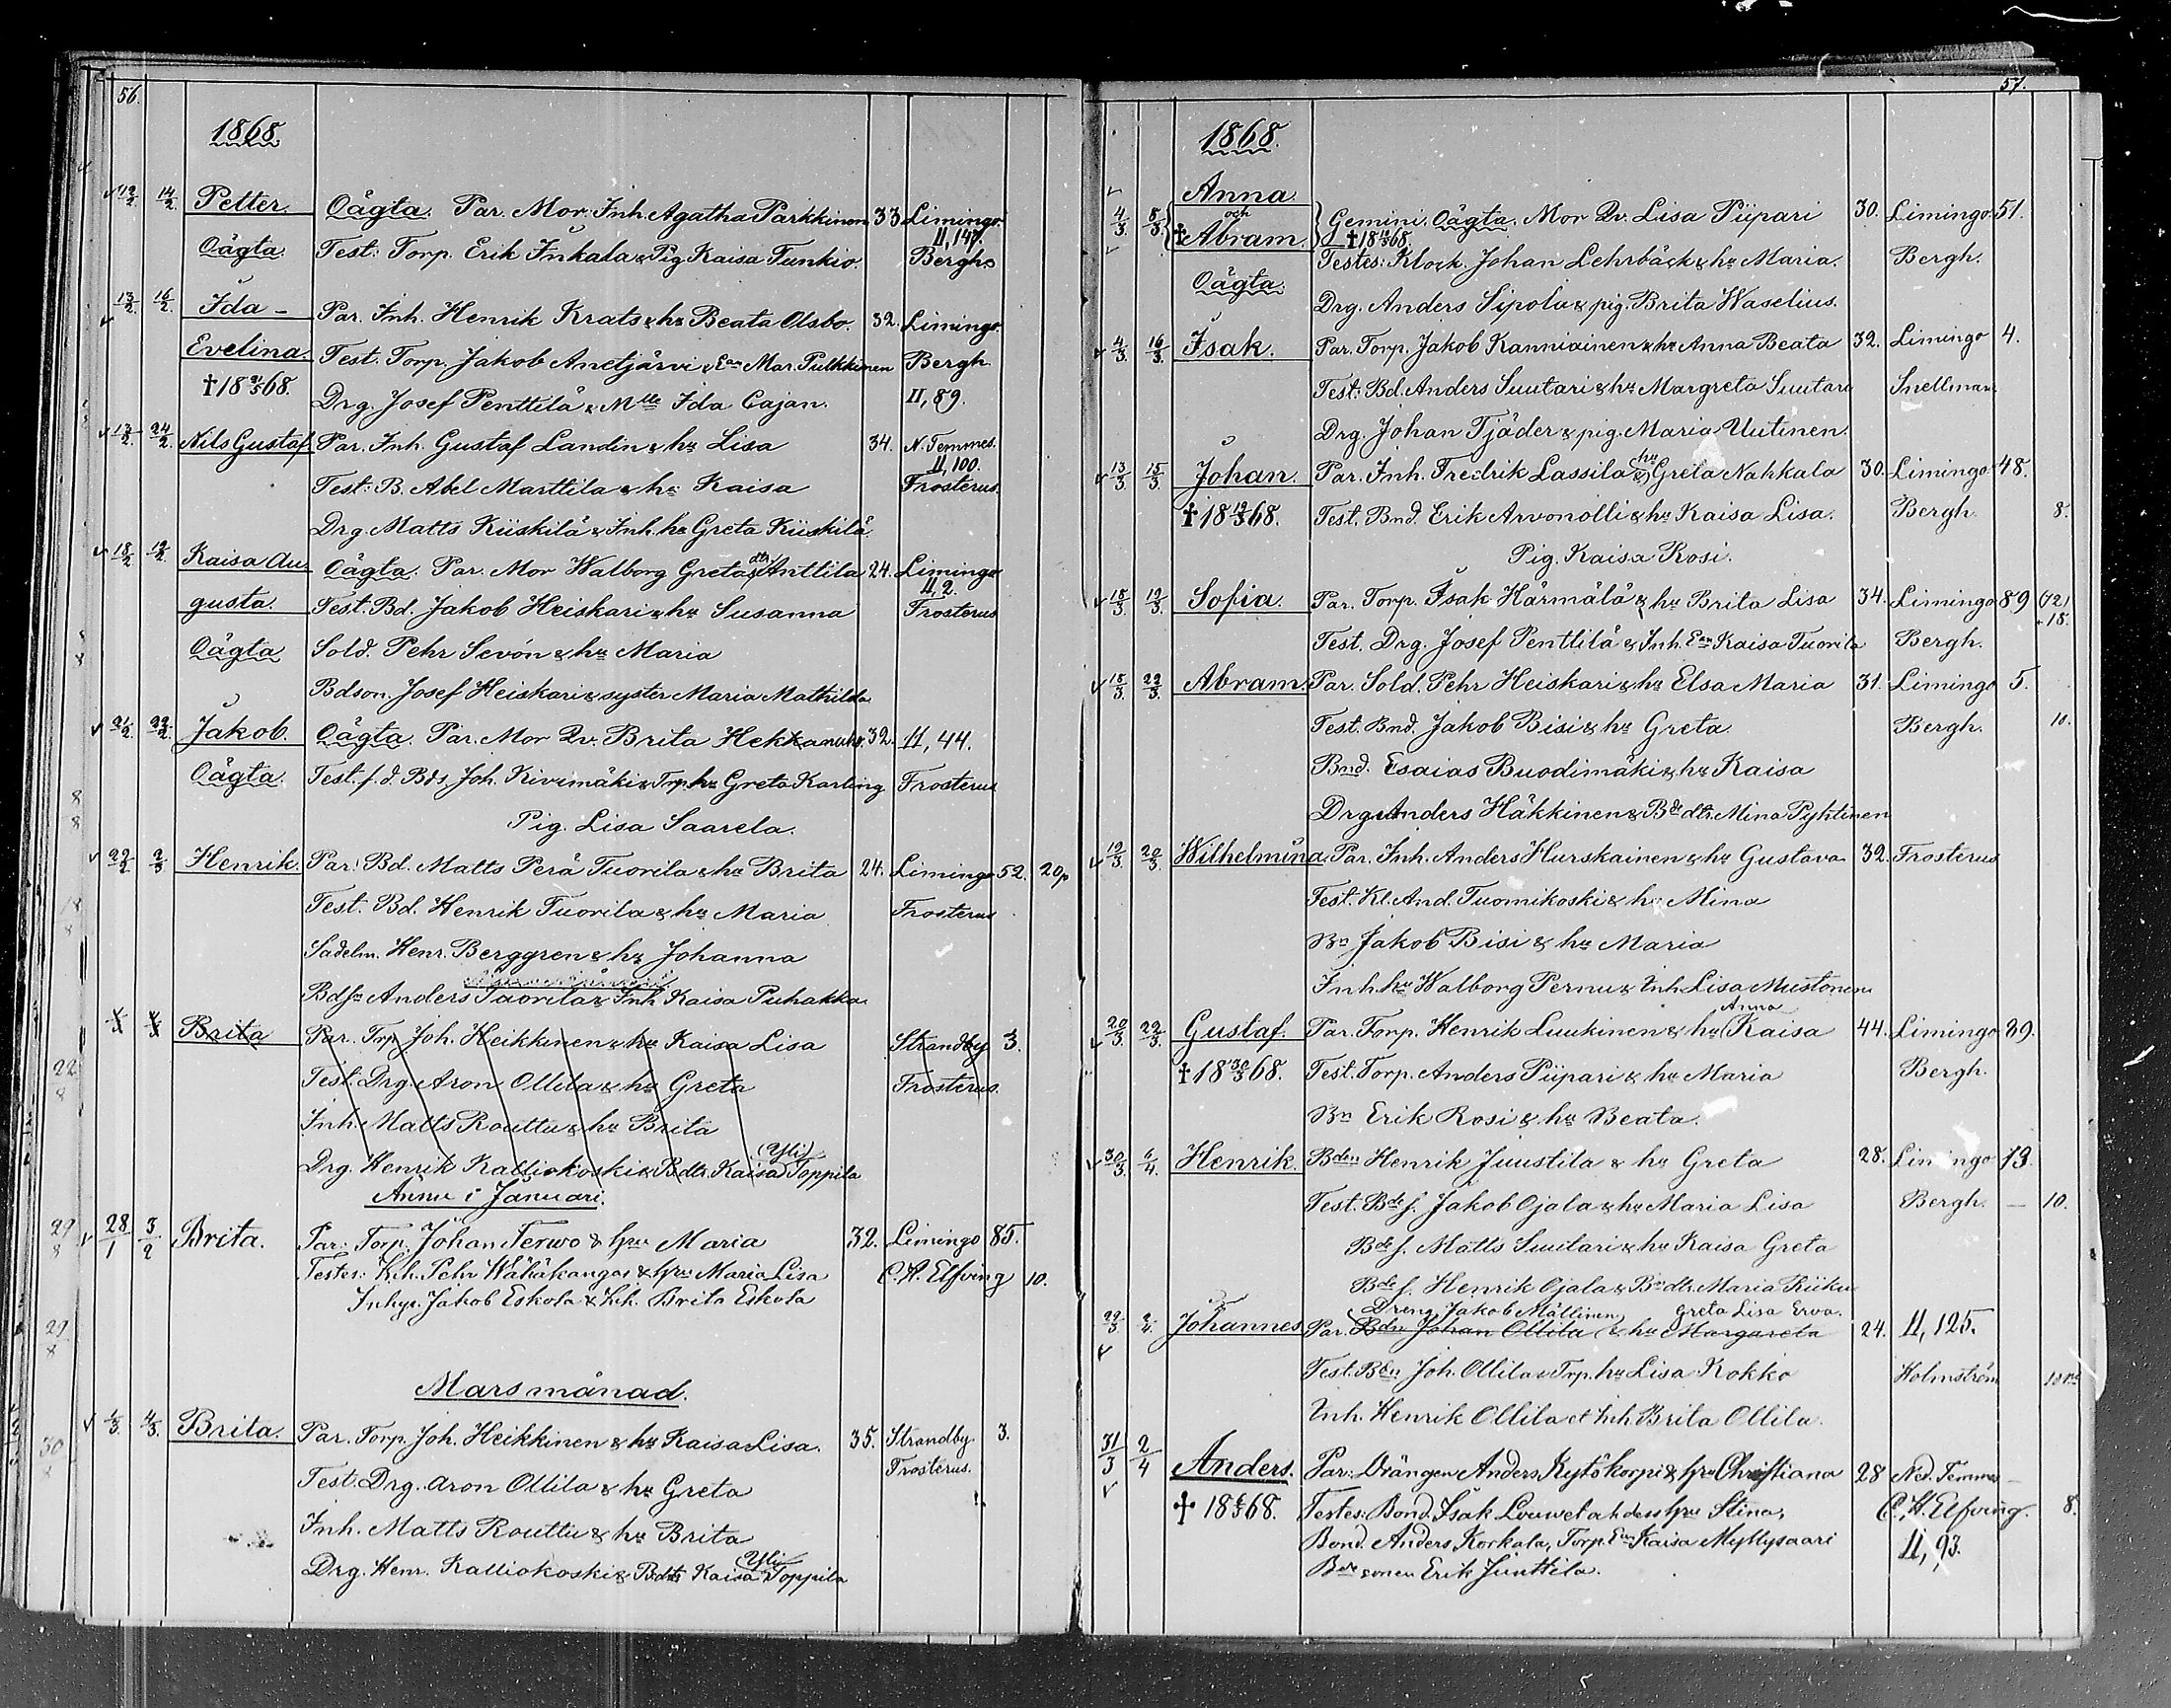 56.
1868.
12/2. 14/2. Petter. Oägta. Par. Mor. Inh. Agatha Parkkinen 33 Limingo. II, 147.
Oägta. Test: Torp. Erik Inkala & Pig Kaisa Funkio. Bergh.
13/2. 16/2. Ida – Par. Inh. Henrik Krats & hu Beata Olsbo. 32. Limingo.
Evelina. Test. Torp. Jakob Anetjärvi & Ean Mar. Pulkkinen Bergh
†18 68. Drg. Josef Penttilä & Mlle Ida Cajan. II, 89.
24/2. Nils Gustaf Par. Inh. Gustaf Landin & hu Lisa 34. N. Temmes. II, 100.
Test: B. Abel Marttila & hu Kaisa Frosterus.
Drg. Matts Kiiskilä & Inh. hu Greta Kiiskilä
18/2 19/2. Kaisa Au- Oägta. Par. Mor Walborg Greta dtr Anttila 24. Limingo II, 2.
gusta. Test. Bd. Jakob Heiskari & hu Susanna Frosterus
Oägta Sold. Pehr Sevón & hu Maria
Bdson. Josef Heiskari & syster Maria Mathilda
21/2. 22/2. Jakob. Oägta. Par. Mor Qv. Brita 32. II, 44.
Oägta. Test. f. d. Bds. Joh. Kivimäki & Trp. hu Greta Karling Frosterus
Pig. Lisa Saarela.
22/2 2/3 Henrik. Par: Bd. Matts Perä Tuorila & hu Brita 24. Limingo 52. 20p
Test. Bd. Henrik Tuorila & hu Maria Frosterus
Sadelm. Henr. Berggren & hu Johanna
Bdsn Anders Tuorila & Inh Kaisa Puhakka
Brita Par. Trp. Joh. Heikkinen & hu Kaisa Lisa Strandby 3.
Test. Drg. Aron Ollila & hu Greta Frosterus.
Inh. Matts Routtu & hu Brita
Drg. Henrik Kalliokoski & Bdtr. Kaisa (Yli) Toppila
Annu i Januari.
28/1 3/2 Brita. Par: Torp. Johan Terwo & hu Maria 32. Limingo 85.
Testes: Pehr Wähäkangas & hu Maria Lisa C. H. Elfving 10.
Inhys. Jakob Eskola & Inh. Brita Eskola
Mars månad.
1/3. 4/3. Brita. Par. Torp. Joh. Heikkinen & hu Kaisa Lisa. 35. Strandby. 3.
Test. Drg. Aron Ollila & hu Greta Frosterus.
Inh. Matts Routtu & hu Brita
Drg. Henr. Kalliokoski & Bdtr Kaisa Yli Toppila
57.
1868.
Anna
4/3 8/3 och
† Abram. Gemini. Oägta. Mor Qv. Lisa Piipari 30. Limingo. 51.
†18 68.
Testes: Klock. Johan Lehrbäck & hu Maria. Bergh.
Oägta. Drg. Anders Sipola & pig. Brita Waselius.
4/3. 16/3. Isak. Par. Torp. Jakob Kanniainen & hu Anna Beata 32. Limingo 4.
Test: Bd. Anders Suutari & hu Margreta Suutari Snellman
Drg. Johan Tjäder & pig. Maria Uutinen.
13/3. 15/3. Johan. Par. Inh. Fredrik Lassila & hu Greta Nahkala 30. Limingo 48.
†18 68. Test. Bnd. Erik Arvonolli & hu Kaisa Lisa. Bergh. 8.
Pig. Kaisa Rosi.
18/3. 19/3. Sofia. Par. Torp. Isak Härmälä & hu Brita Lisa 34. Limingo 89
Test. Drg. Josef Penttilä & Inh. Ean Kaisa Tuorila Bergh. 18.
18/3. 22/3. Abram. Par. Sold. Pehr Heiskari & hu Elsa Maria 31. Limingo 5.
Test. Bnd. Jakob Bisi & hu Greta Bergh. 10.
Bnd. Esaias Buodimäki & hu Kaisa
Drg. Anders Häkkinen & Bde dtr. Mina Pyhtinen
19/3. 20/3. Wilhelmina. Par. Inh. Anders Hurskainen & hu Gustava 32. Frosterus
Test. Kl. And. Tuomikoski & hu Mina
Bn Jakob Bisi & hu Maria
Inh. hu Walborg Pernu & Inh. Lisa Mustonen
20/3. 22/3. Gustaf. Par. Torp. Henrik Luukinen & hu Anna Kaisa 44. Limingo 39.
†18 68. Test. Torp. Anders Piipari & hu Maria Bergh.
Bn Erik Rosi & hu Beata.
30/3. Henrik. Bden Henrik Juustila & hu Greta 28. Limingo 73.
Test. Bde s. Jakob Ojala & hu Maria Lisa Bergh. — 10.
Bde s. Matts Suutari & hu Kaisa Greta
Bde s. Henrik Ojala & Bn dtr. Maria
Dreng Jakob Mällinen, Greta Lisa Erva.
Johannes Par. Bdn Johan Ollila & hu Margareta 24. II, 125.
Test. Bdn Joh. Ollila & Trp. hu Lisa Kokko Holmström
Inh. Henrik Ollila et Inh Brita Ollila.
31/3 2/4 Anders. Par: Drängen Anders Kytökorpi & hu Christiana 28 Ned. Temmes
† 18 68. Testes: Bond. Isak dess hu Stina, C. H. Elfving. 8.
Bond. Anders Korkala, Torp. Ean Kaisa Myllysaari II, 93.
Bde sonen Erik Junttila.